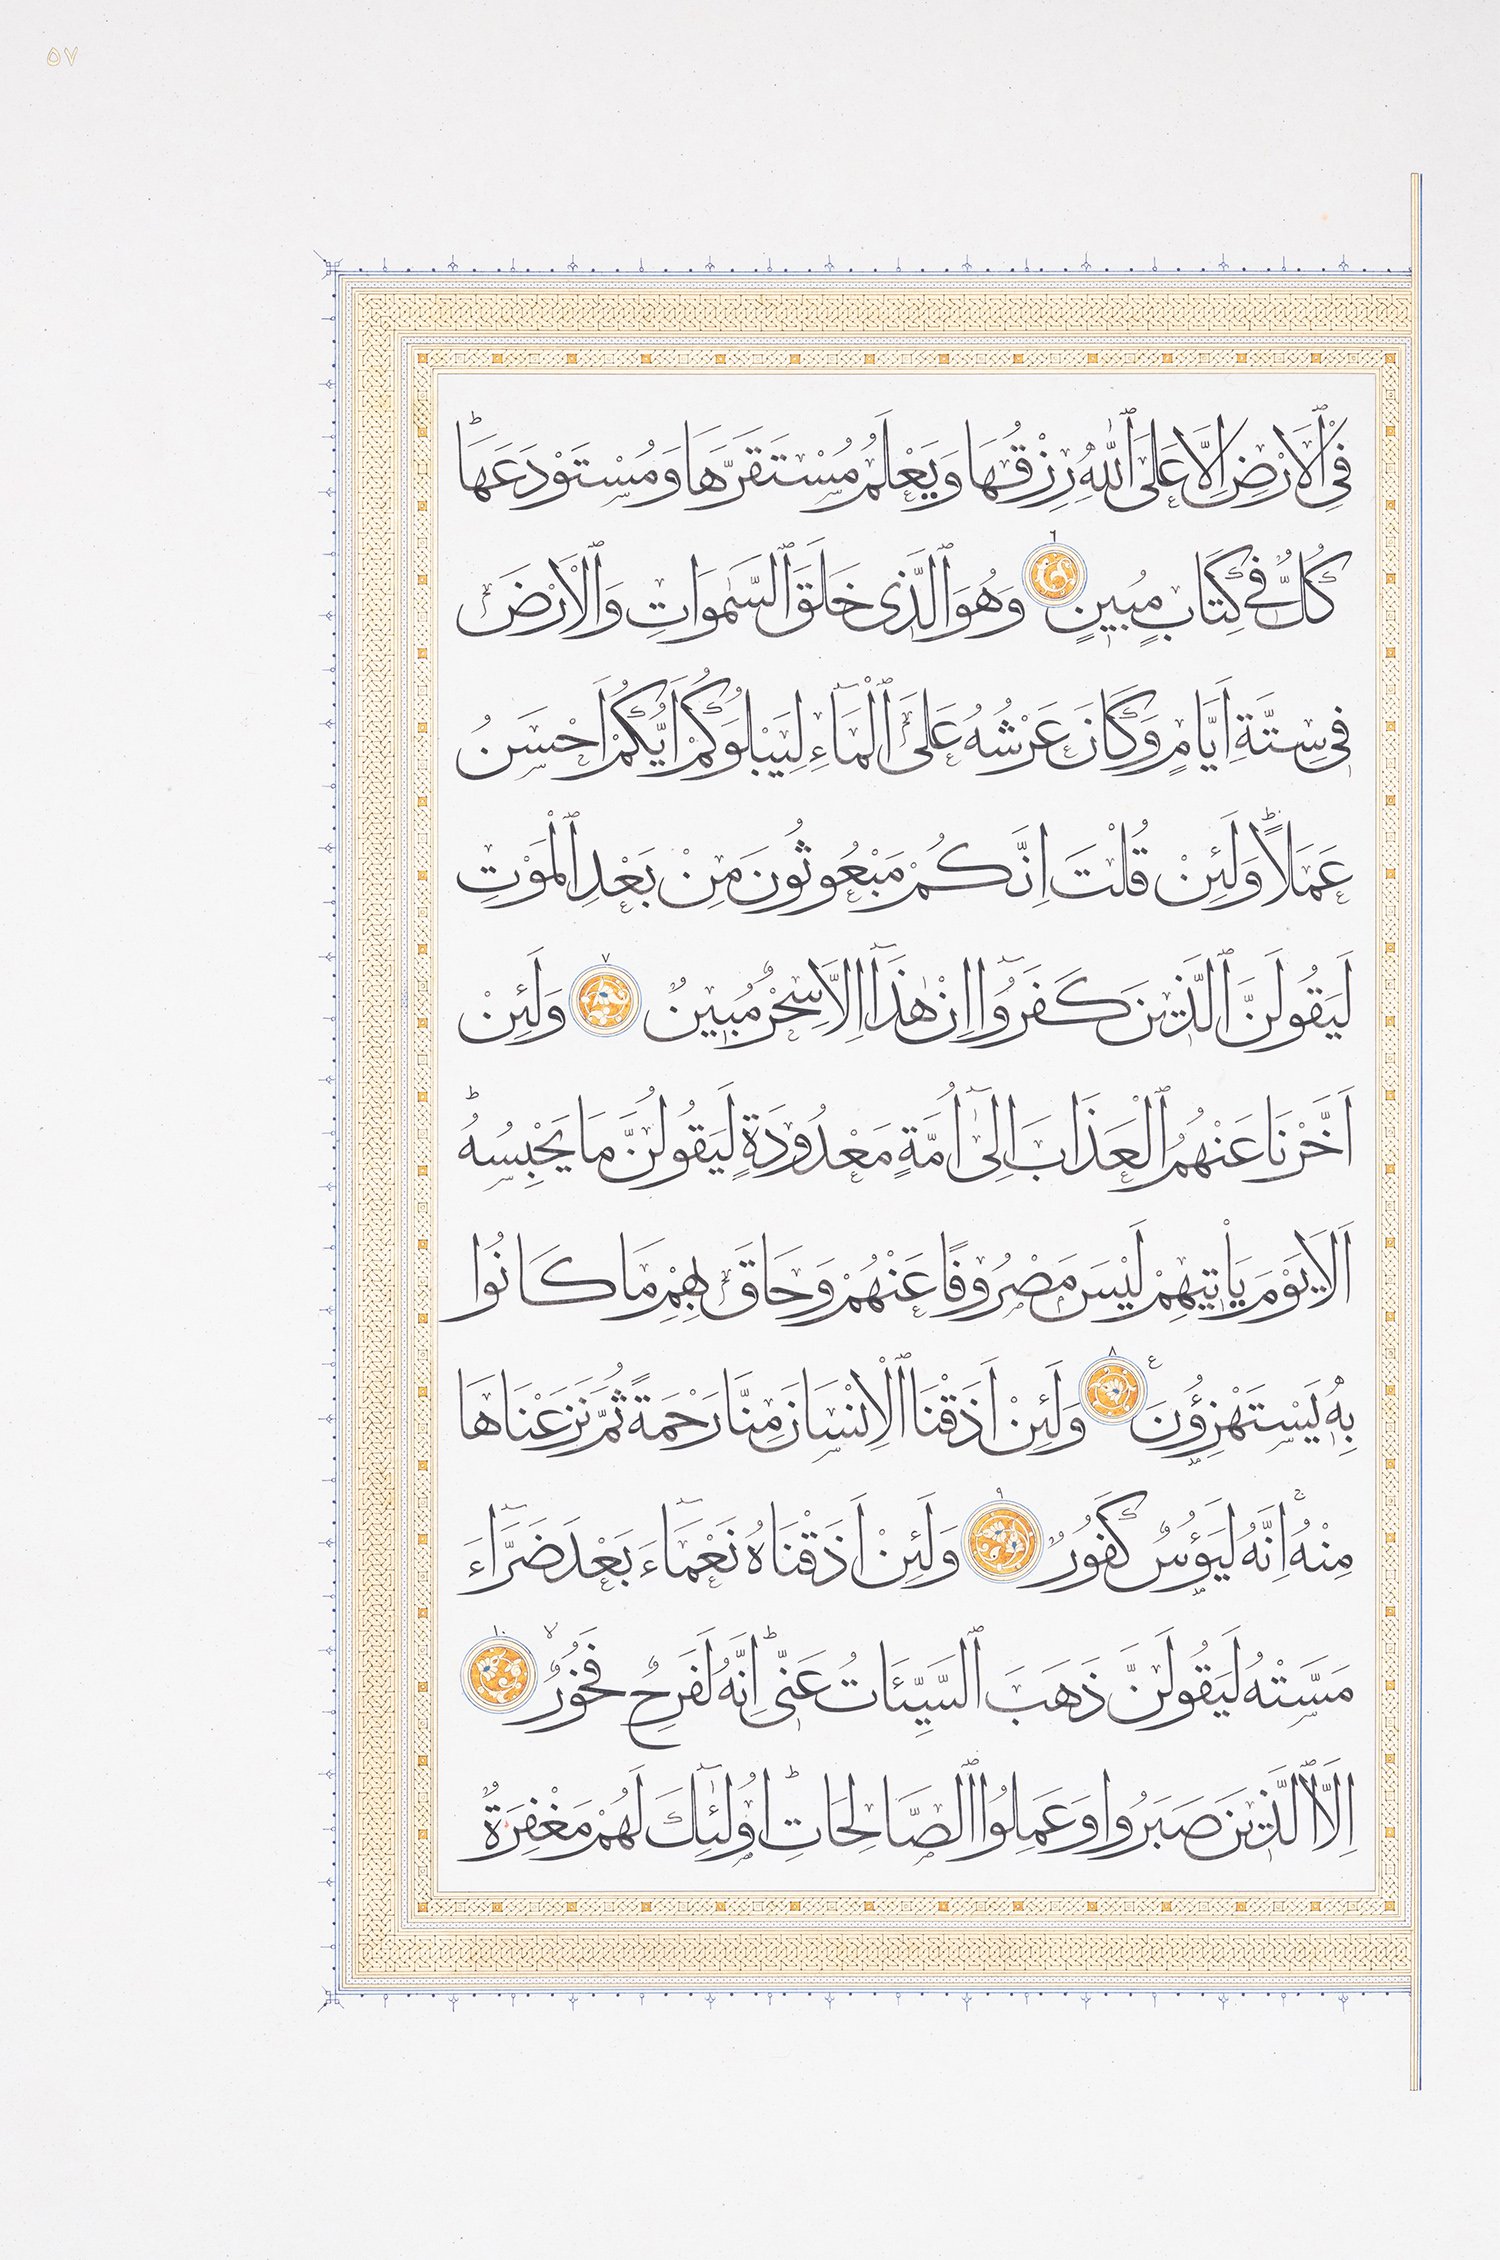 ٥٧
فِى ٱلْاَرْضِ اِلَّا عَلَى ٱللّٰهِ رِزْقُهَا وَيَعْلَمُ مُسْتَقَرَّهَا وَمُسْتَوْدَعَهَاۜ
كُلٌّ فِى كِتَابٍ مُبِينٍ ٦ وَهُوَ ٱلَّذِى خَلَقَ ٱلسَّمٰوَاتِ وَٱلْاَرْضَ
فِى سِتَّةِ اَيَّامٍ وَكَانَ عَرْشُهُ عَلَى ٱلْمَٓاءِ لِيَبْلُوَكُمْ اَيُّكُمْ اَحْسَنُ
عَمَلاًؕ وَلَئِنْ قُلْتَ اِنَّكُمْ مَبْعُوثُونَ مِنْ بَعْدِ ٱلْمَوْتِ
لَيَقُولَنَّ ٱلَّذِينَ كَفَرُٓوا اِنْ هٰذَٓا اِلَّا سِحْرٌ مُبِينٌ ٧ وَلَئِنْ
اَخَّرْنَا عَنْهُمُ ٱلْعَذَابَ اِلٰٓى اُمَّةٍ مَعْدُودَةٍ لَيَقُولُنَّ مَا يَحْبِسُهُؕ
اَلَا يَوْمَ يَأْتِيهِمْ لَيْسَ مَصْرُوفًا عَنْهُمْ وَحَاقَ بِهِمْ مَا كَانُوا
بِهٖ يَسْتَهْزِؤُنَ ع ٨ وَلَئِنْ اَذَقْنَا ٱلْاِنْسَانَ مِنَّا رَحْمَةً ثُمَّ نَزَعْنَاهَا
مِنْهُۚ اِنَّهُ لَيَؤُسٌ كَفُورٌ ٩ وَلَئِنْ اَذَقْنَاهُ نَعْمَٓاءَ بَعْدَ ضَرَّٓاءَ
مَسَّتْهُ لَيَقُولَنَّ ذَهَبَ ٱلسَّيِّـَٔاتُ عَنِّىؕ اِنَّهُ لَفَرِحٌ فَخُورٌۙ ١٠
اِلَّا ٱلَّذِينَ صَبَرُوا وَعَمِلُوا ٱلصَّالِحَاتِؕ اُولٰٓئِكَ لَهُمْ مَغْفِرَةٌ